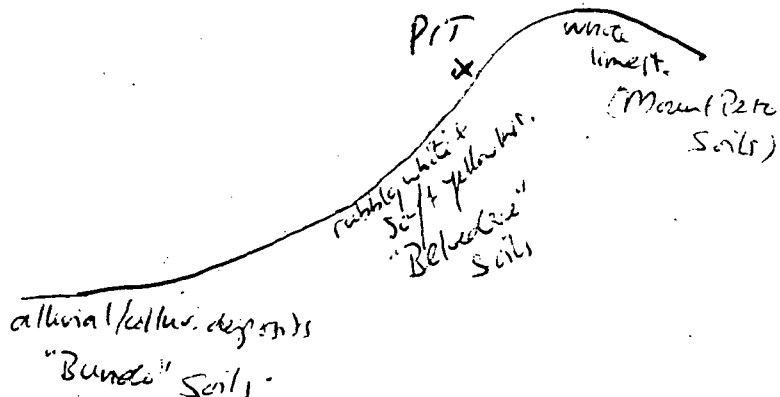 PIT
white
limest.
(Mount Pero
Soils)
rubbly white +
soft yellow lms.
"Belvedere"
Soils
alluvial/colluv. deposits
"Bundo" Soils.